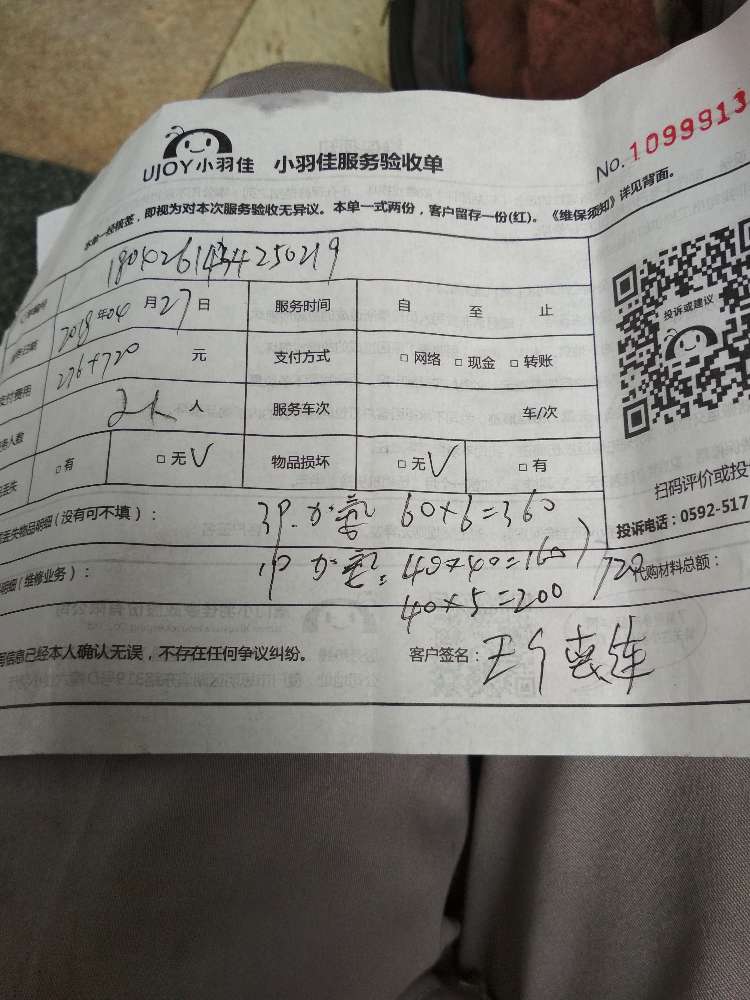 UJOY小羽佳 小羽佳服务验收单
No.1099913
本单一经核签，即视为对本次服务验收无异议。本单一式两份，客户留存一份(红)。《维保须知》详见背面。
2018年04月27日 服务时间 自 至 止
支付费用 276+720 元 支付方式 □网络 □现金 □转账
2人 人 服务车次 车/次
丢失 □有 □无√ 物品损坏 □无√ □有
投诉或建议
扫码评价或投
投诉电话：0592-517
丢失物品明细（没有可不填）： 3P 60×6=360
明细（维修业务）： 1P 40×40=160 720
40×5=200
代购材料总额：
信息已经本人确认无误，不存在任何争议纠纷。 客户签名：